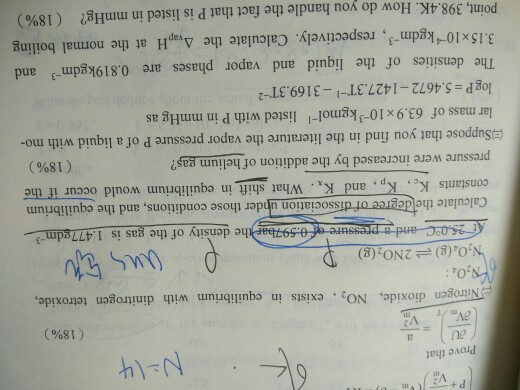 (P + a/V²ₘ)(Vₘ
Prove that
(∂U/∂Vₘ)_T = a/V²ₘ (18%)
N=14
㈡Nitrogen dioxide, NO₂, exists in equilibrium with dinitrogen tetroxide,
N₂O₄ :
N₂O₄(g) ⇌ 2NO₂(g)
P
ρ
At 25.0°C and a pressure of 0.597bar the density of the gas is 1.477gdm⁻³
Calculate the degree of dissociation under those conditions, and the equilibrium
constants K꜀, Kₚ, and Kₓ. What shift in equilibrium would occur if the
pressure were increased by the addition of helium gas? (18%)
㈢Suppose that you find in the literature the vapor pressure P of a liquid with mo-
lar mass of 63.9×10⁻³kgmol⁻¹ listed with P in mmHg as
logP = 5.4672 − 1427.3T⁻¹ − 3169.3T⁻²
The densities of the liquid and vapor phases are 0.819kgdm⁻³ and
3.15×10⁻⁴kgdm⁻³, respectively. Calculate the ΔvapH at the normal boiling
point, 398.4K. How do you handle the fact that P is listed in mmHg? (18%)